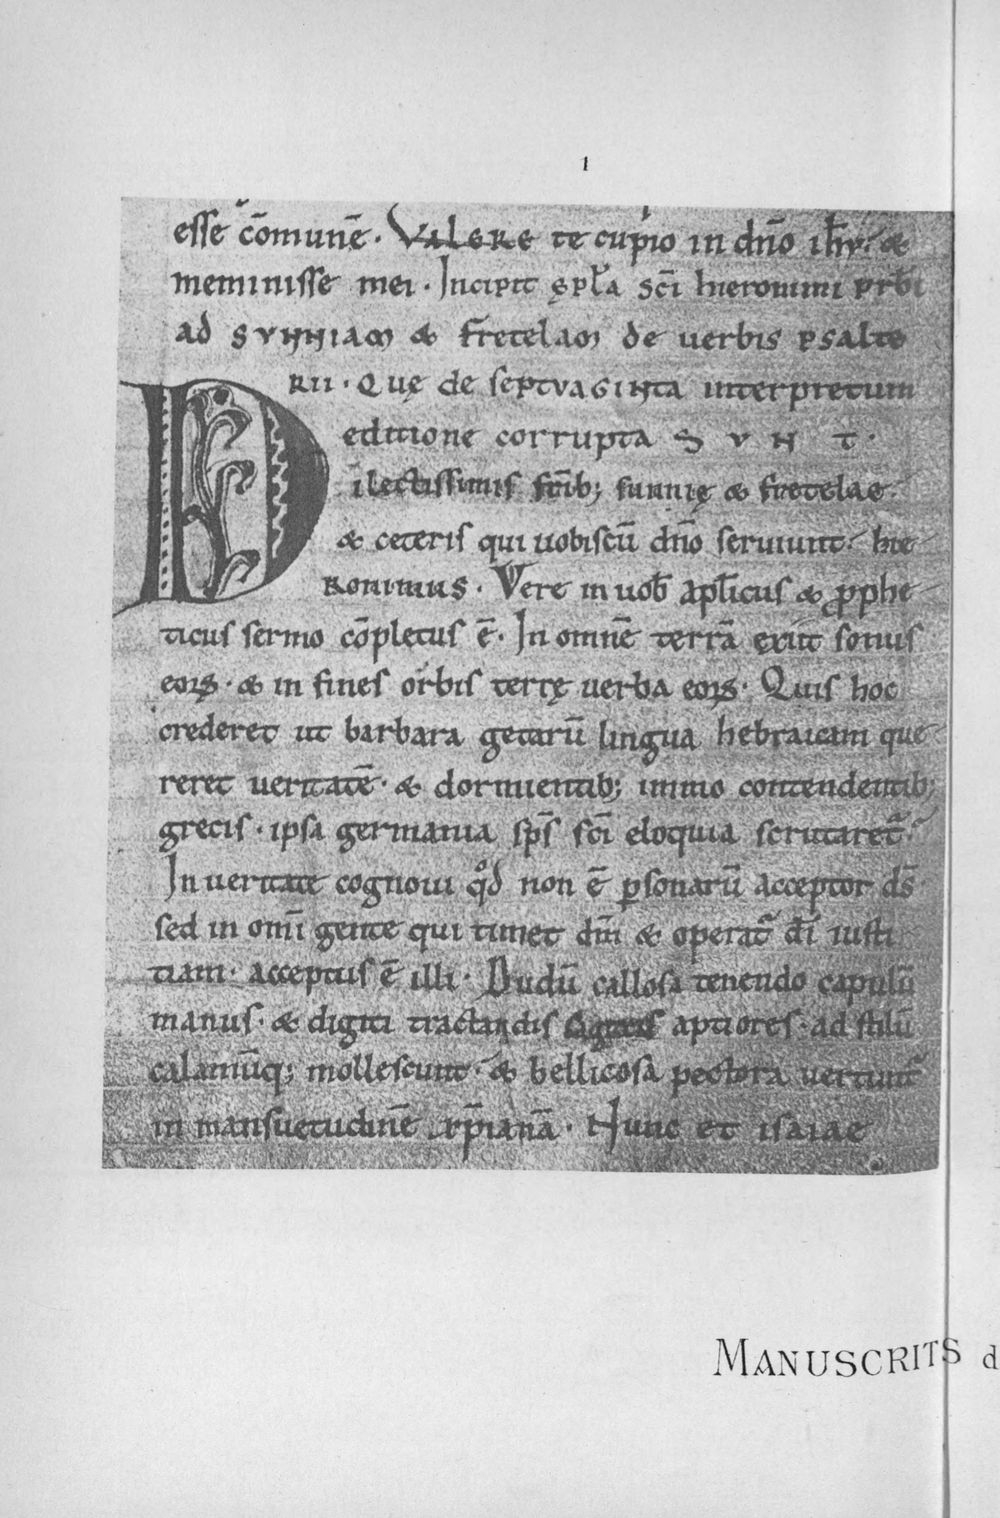 1
esse cōmunē. VALERE te cupio in dn̄o ihū. &
meminisse mei. Incipit ępl̄a sc̄i hieronimi prb̄i
ad SVNNIAM & fretelam de verbis psalte
RII. Quę de septVAGINTA interpretum
editione corrupta S V N T.
Dilectissimis fr̄ib; sunnię & fretelae.
& ceteris qui uobiscū dn̄o seruiunt. hie
RONIMUS. Vere in uob̄ apl̄icus & ꝓphe
ticus sermo cōpletus ē. In omnē terrā exiit sonus
eoꝝ. & in fines orbis terrę uerba eoꝝ. Quis hoc
crederet ut barbara getarū lingua hebraicam que
reret ueritatē. & dormientib; immo contendentib;
grecis. ipsa germania sp̄s sc̄i eloquia scrutaret̄.
In ueritate cognoui qd̊ non ē ꝑsonarū acceptor ds̄
sed in om̄i gente qui timet dm̄ & operat̄ dī iusti
tiam. acceptus ē illi. Dudū callosa tenendo capulū
manus. & digiti tractandis aptiores. ad stilū
calamūq; mollescunt. & bellicosa pectora uertunt̄
in mansuetudinē xp̄ianā. Nunc et isaiae
MANUSCRITS d